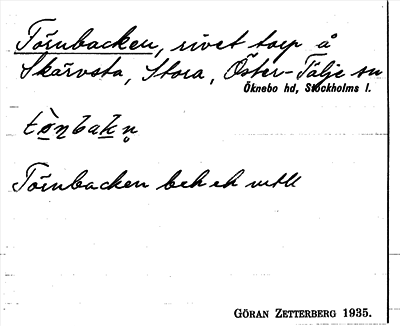 Törnbacken, rivet torp å
Skärvsta, Stora, Öster-Tälje sn
Öknebo hd, Stockholms l.
Törnbacken
GÖRAN ZETTERBERG 1935.